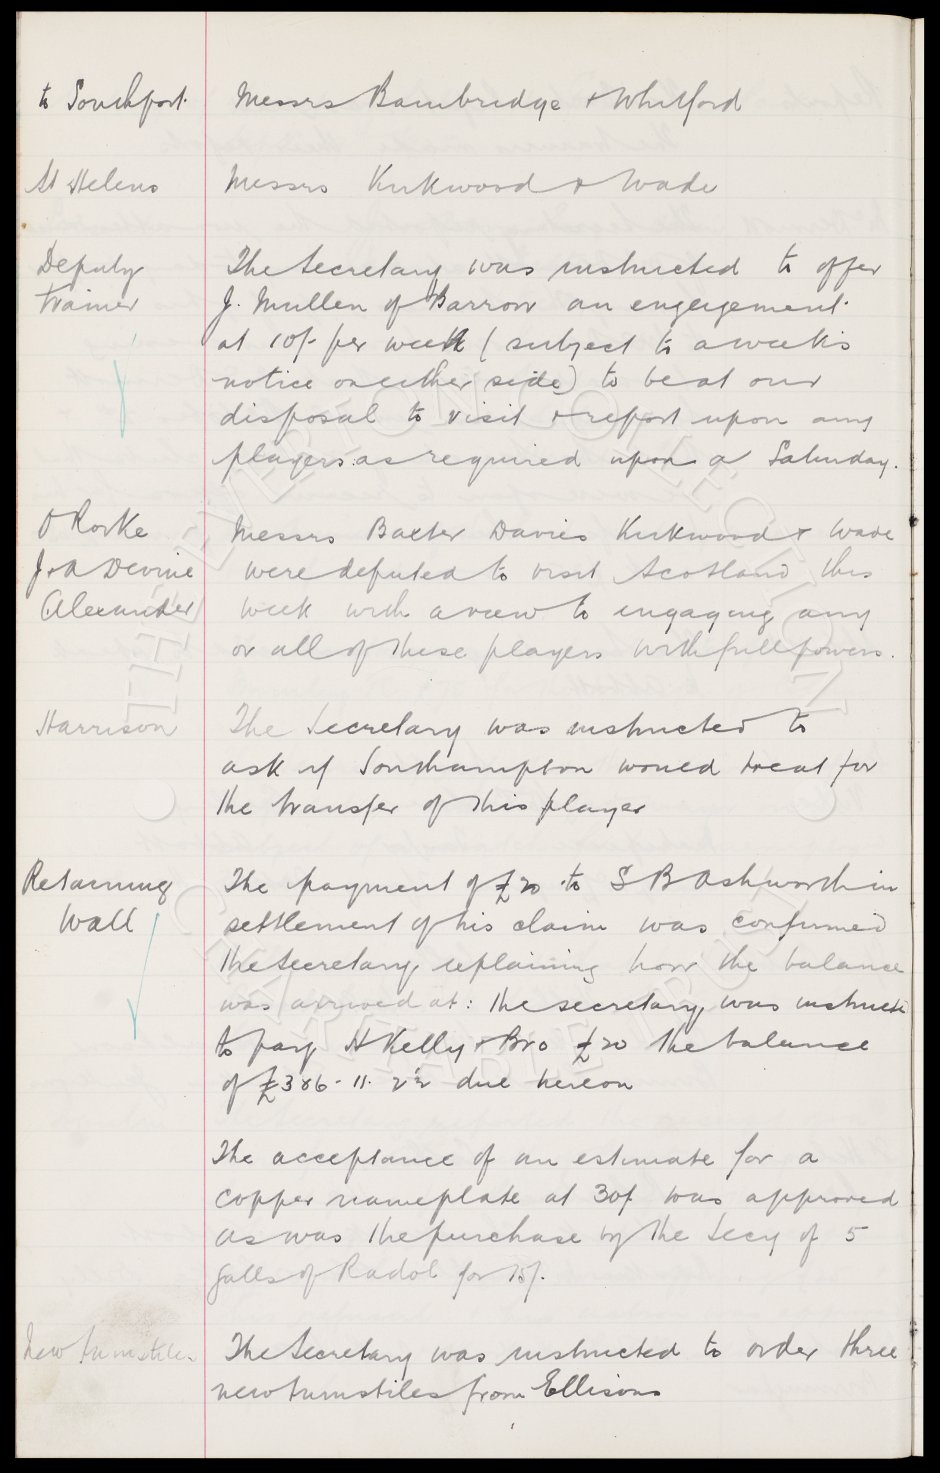 to Southport Messrs Bainbridge & Whitford
St Helens Messrs Kirkwood & Wade
Deputy The Secretary was instructed to offer
trainer J. Mullen of Barrow an engagement
at 10/- per week (subject to a week's
notice on either side) to be at our
disposal to visit & report upon any
players as required upon a Saturday.
O Rorke Messrs Baxter Davies Kirkwood & Wade
J & A Devine were deputed to visit Scotland this
Alexander week with a view to engaging any
or all of these players with full powers.
Harrison The Secretary was instructed to
ask if Southampton would treat for
the transfer of this player
Retaining The payment of £20 to S B Ashworth in
Wall settlement of his claim was confirmed
the Secretary explaining how the balance
was arrived at: the secretary was instructd
to pay H Kelly & Bro £20 the balance
of £386-11-2½ due hereon
The acceptance of an estimate for a
copper nameplate at 30/- was approved
as was the purchase by the Secy of 5
galls of Radol for 15/-
New turnstiles The Secretary was instructed to order three
new turnstiles from Ellisons
THE EVERTON COLLECTION
CHARITABLE TRUST